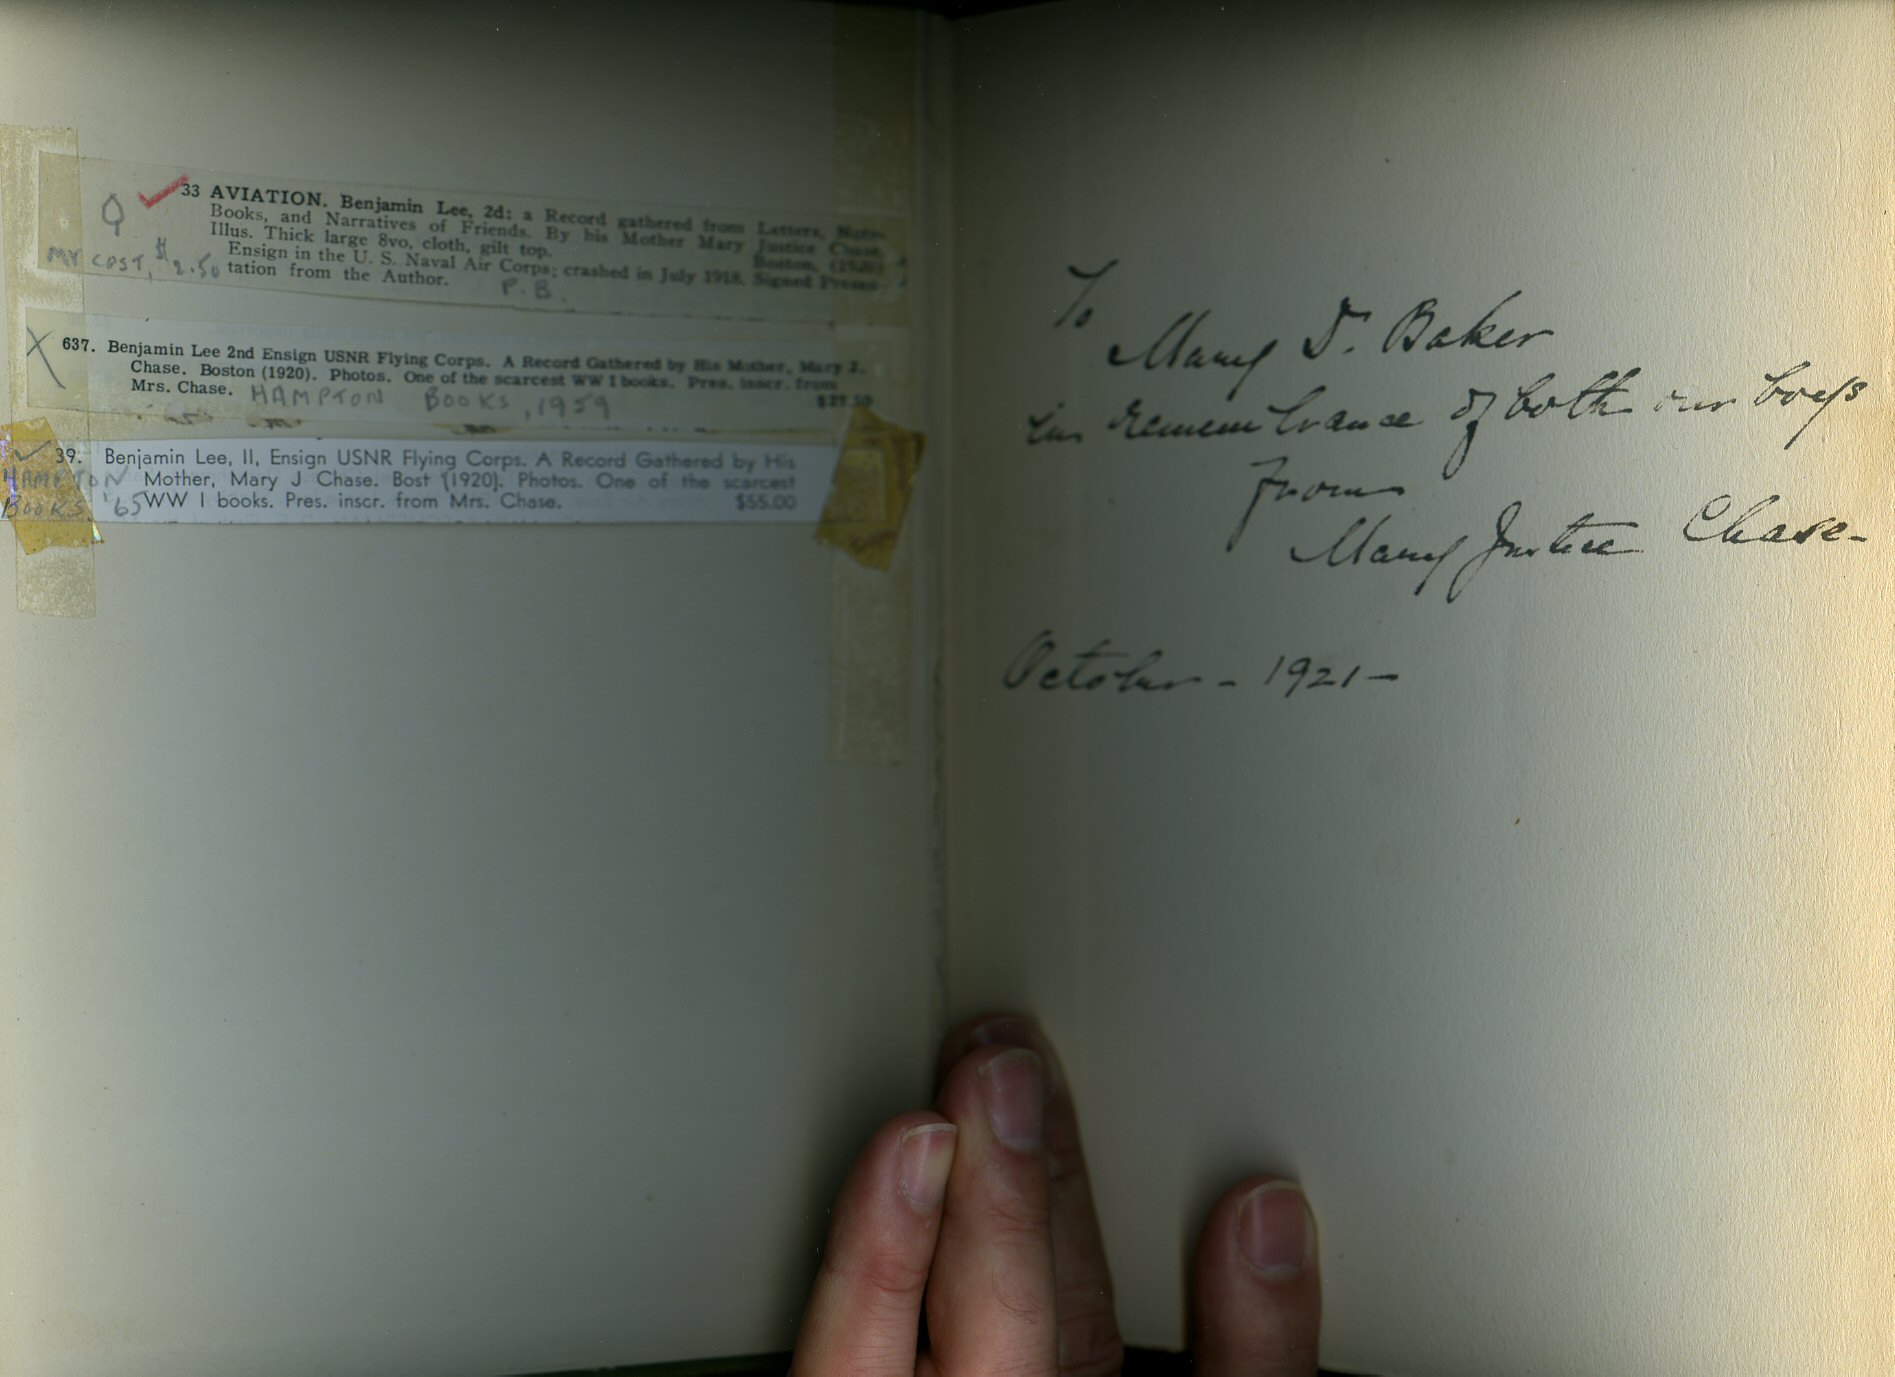 33 AVIATION. Benjamin Lee, 2d: a Record gathered from Letters, Note-
Books, and Narratives of Friends. By his Mother Mary Justice Chase.
Illus. Thick large 8vo, cloth, gilt top. Boston, (1920)
Ensign in the U. S. Naval Air Corps; crashed in July 1918. Signed Presen-
tation from the Author. P.B.
Q
MY COST, $2.50
X
637. Benjamin Lee 2nd Ensign USNR Flying Corps. A Record Gathered by His Mother, Mary J.
Chase. Boston (1920). Photos. One of the scarcest WW I books. Pres. inscr. from
Mrs. Chase. HAMPTON BOOKS, 1959
39. Benjamin Lee, II, Ensign USNR Flying Corps. A Record Gathered by His
Mother, Mary J Chase. Bost (1920). Photos. One of the scarcest
WW I books. Pres. inscr. from Mrs. Chase. $55.00
HAMPTON
BOOKS. '65
To
Mary D. Baker
in remembrance of both our boys
from
Mary Justice Chase-
October - 1921 -